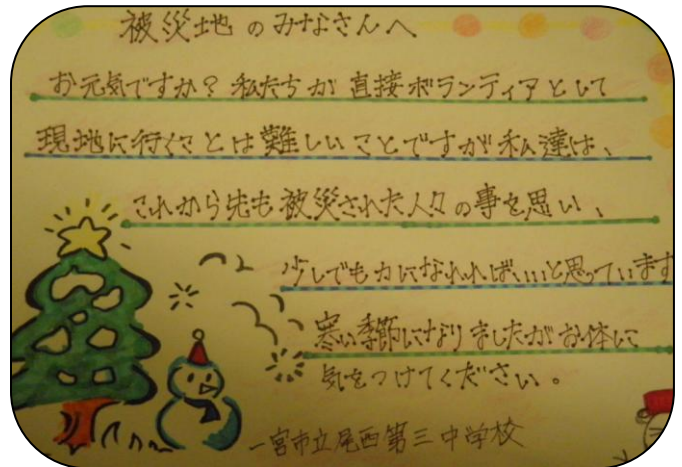 被災地のみなさんへ
お元気ですか？私たちが直接ボランティアとして
現地に行くことは難しいことですが私達は、
これから先も被災された人々の事を思い、
少しでも力になれればいいと思っています
寒い季節になりましたがお体に
気をつけてください。
一宮市立尾西第三中学校